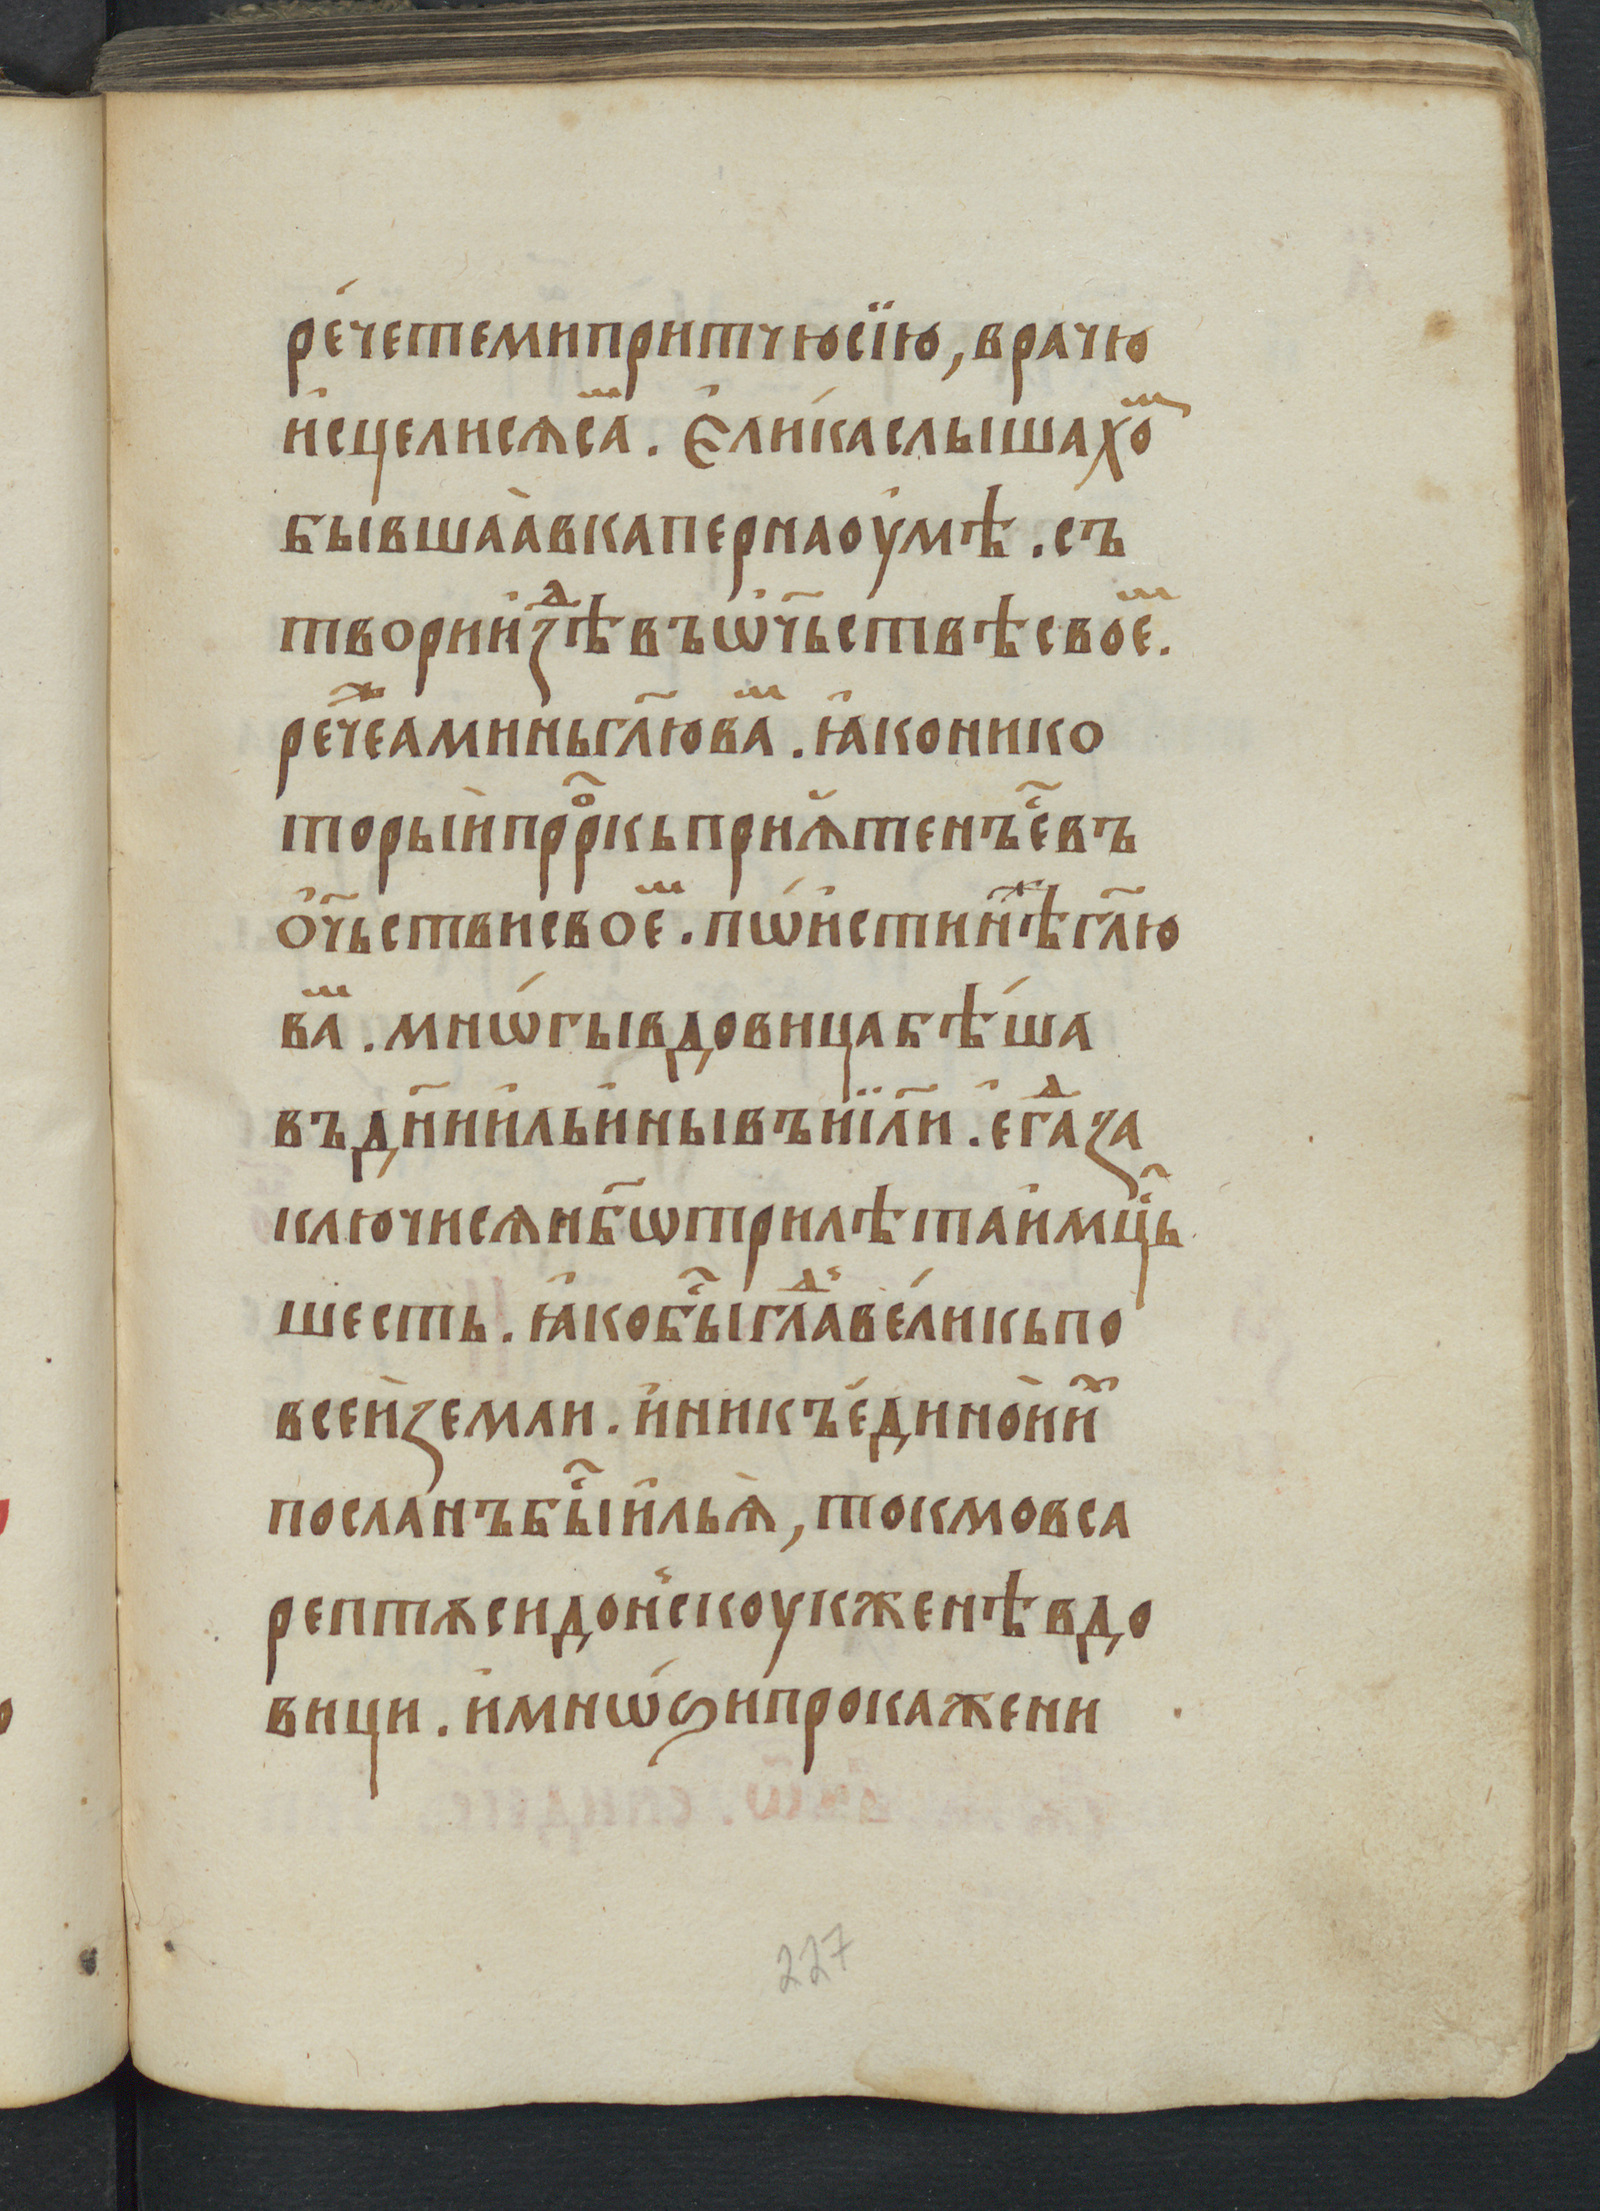 ре́четемипритчюсїю, врачю
и҆сцелисѧса̑ⷨ. Є҆ли́каслышахоⷨ
бывшаа̀вкапернаоу́мѣ. съ
твориѝзⷣѣвъѡ҆ч҃ьствѣсвоеⷨ.
речеⷤаминьгл҃юваⷨ. ꙗ҆конико
торыѝпрⷪ҇ркъприѧ̀тенъе҆сⷭ҇въ
о҆ч҃ьствисвоеⷨ. пѡ́и҆стинⷤѣгл҃ю
ваⷨ. мнѡ́гывдовицабѣ́ша
въдн҃ии҆льи҆нывъиї҃ли. е҆гⷣаза
ключисѧнб҃ѡтрилѣтаи҆мцⷭ҇ь
шесть. ꙗ҆кобⷭ҇ыглⷣаве́ликъпо
всеѝземли. и҆никъе҆диноѝиⷯ
посланъбⷭ҇ыи҆льѧ̀, токмовса
рептѧсидоньскоукженѣвдо
вици. и҆мнѡ́ѕипрокажени
227